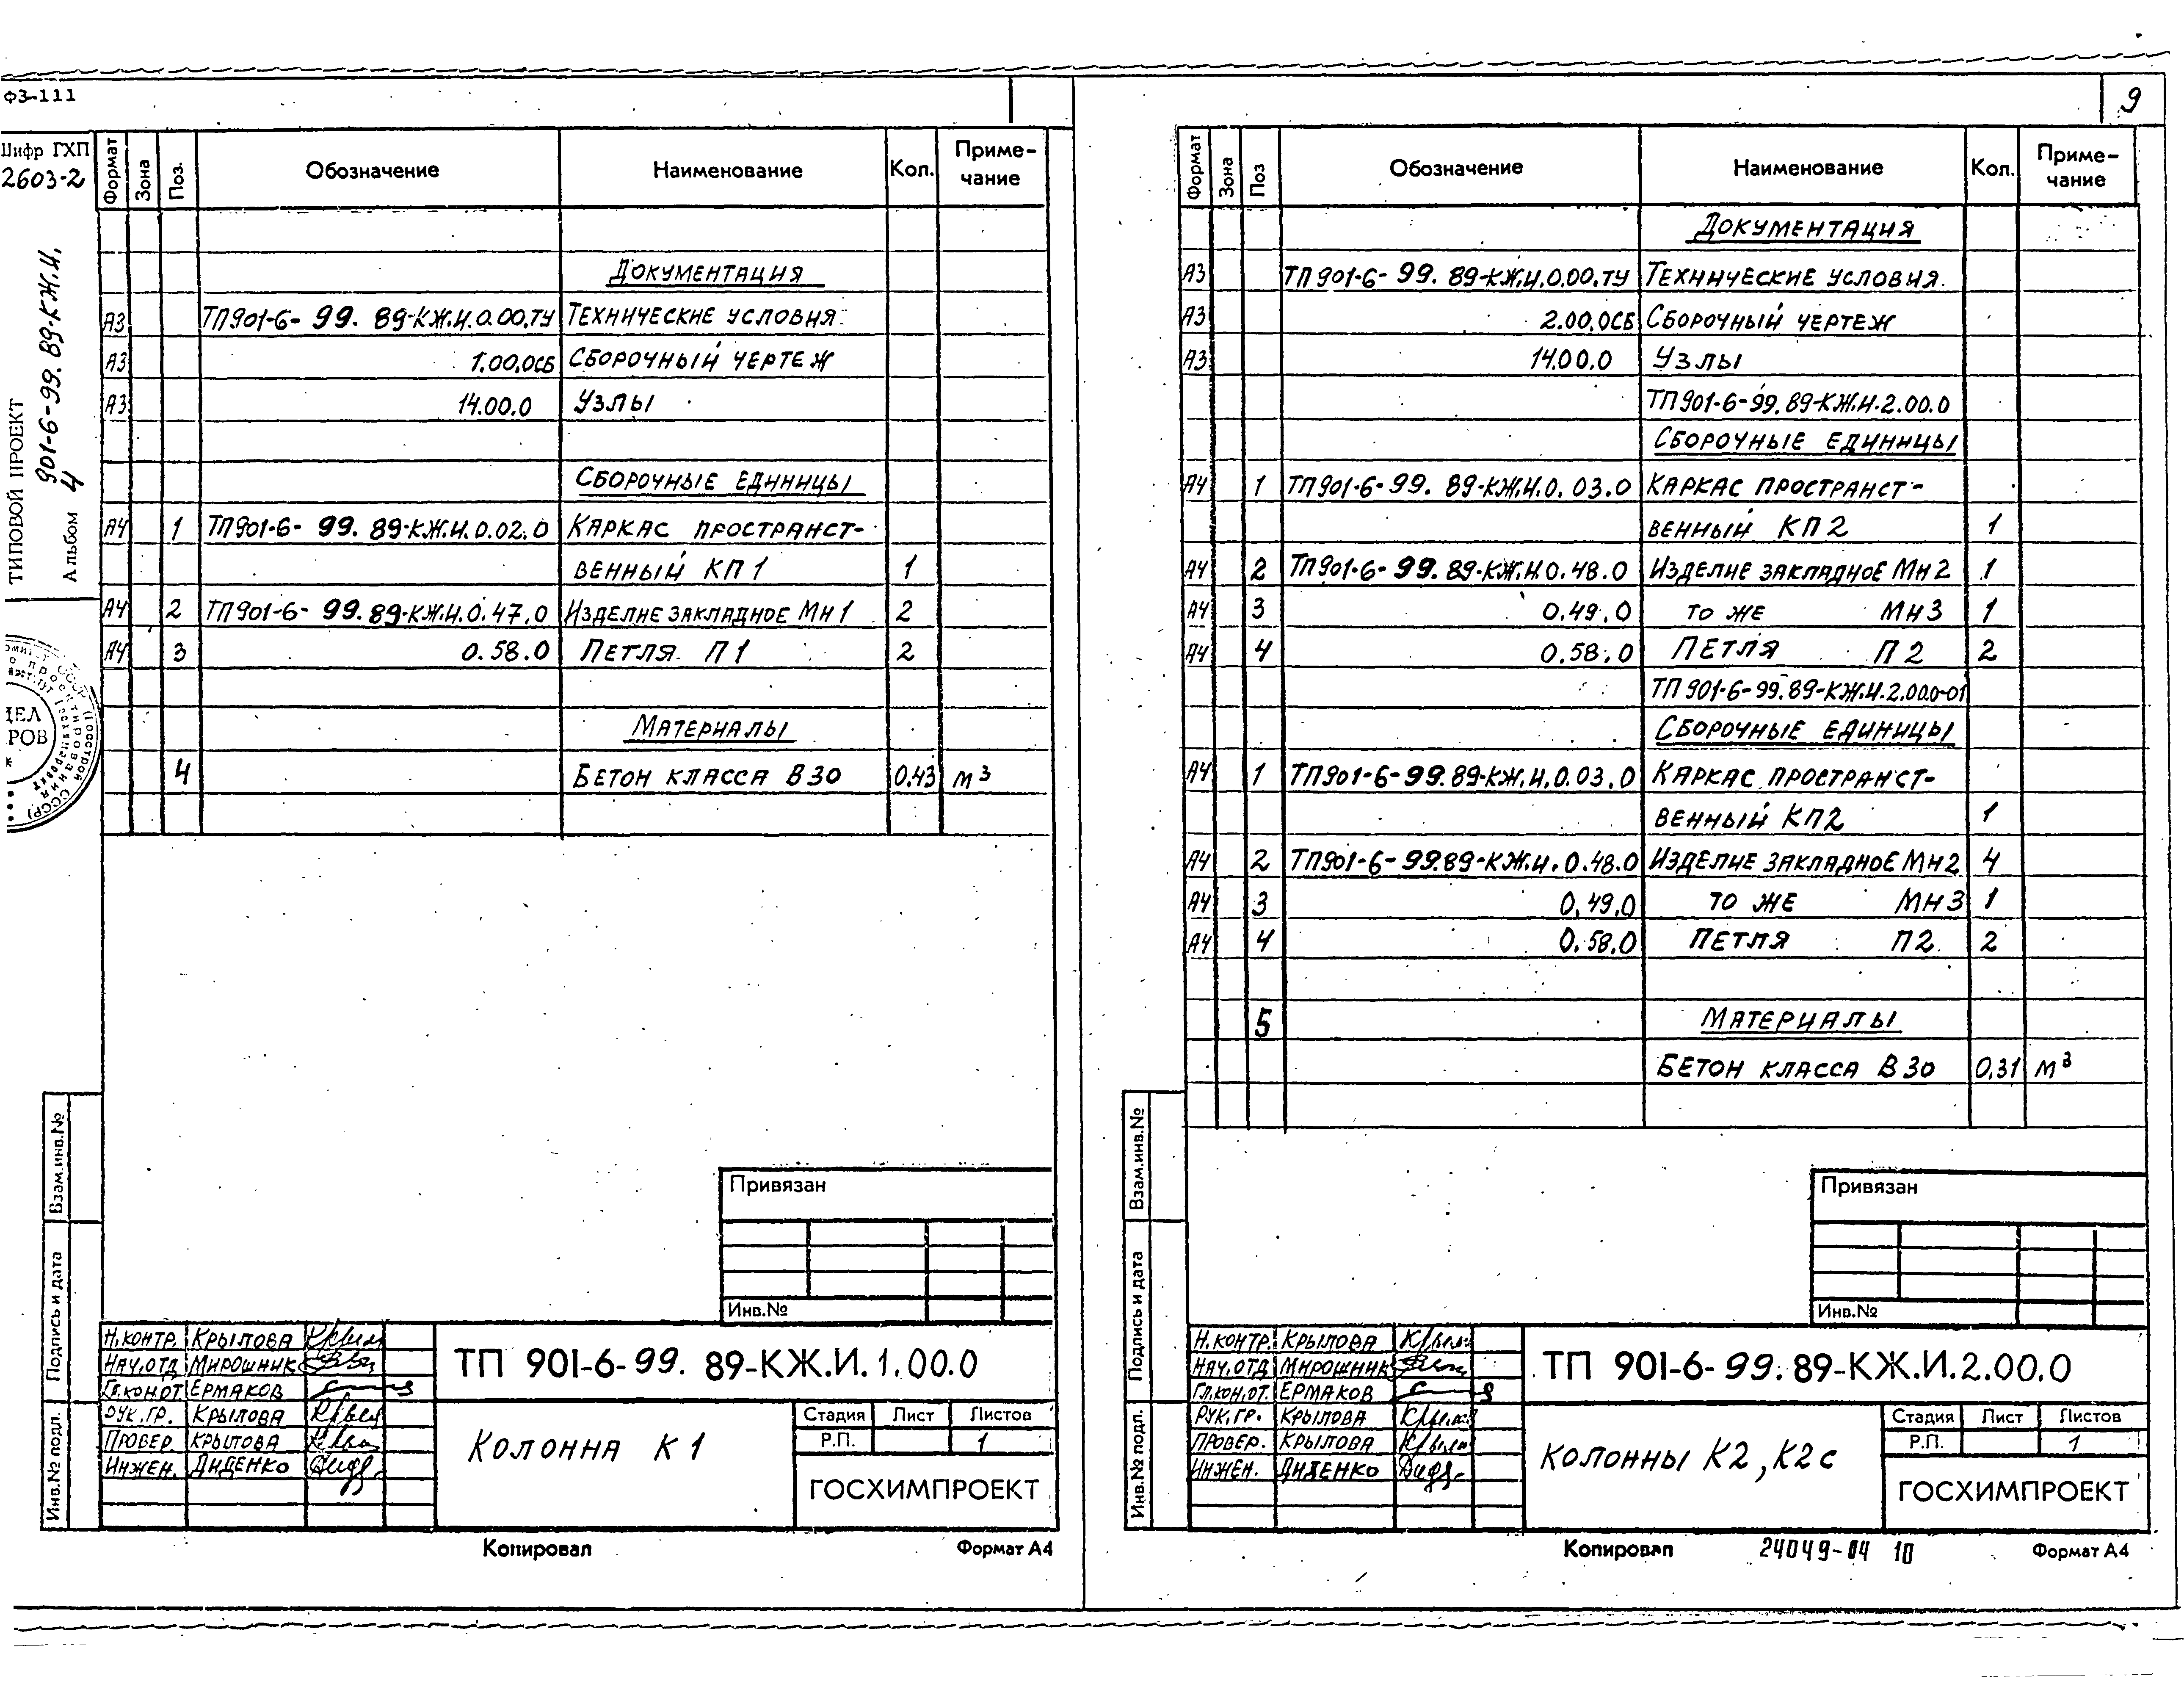 ФЗ-111
Шифр ГХП
2603-2
ТИПОВОЙ ПРОЕКТ
901-6-99.89-КЖ.И.
Альбом 4
Формат Зона Поз. Обозначение Наименование Кол. Приме-
чание
Документация
А3 ТП901-6-99.89-КЖ.И.0.00.ТУ Технические условия
А3 1.00.0СБ Сборочный чертеж
А3 14.00.0 Узлы
Сборочные единицы
А4 1 ТП901-6-99.89-КЖ.И.0.02.0 Каркас пространст-
венный КП1 1
А4 2 ТП901-6-99.89-КЖ.И.0.47.0 Изделие закладное Мн1 2
А4 3 0.58.0 Петля П1 2
Материалы
4 Бетон класса В30 0,43 м³
Взам.инв.№
Подпись и дата
Инв.№ подл.
Привязан
Инв.№
Н.контр. Крылова
Нач.отд Мирошник
Гл.кон.от Ермаков
Рук.гр. Крылова
Провер. Крылова
Инжен. Диденко
ТП 901-6-99.89-КЖ.И.1.00.0
Колонна К1
Стадия Лист Листов
Р.П. 1
ГОСХИМПРОЕКТ
Копировал Формат А4
9
Формат Зона Поз Обозначение Наименование Кол. Приме-
чание
Документация
А3 ТП901-6-99.89-КЖ.И.0.00.ТУ Технические условия
А3 2.00.0СБ Сборочный чертеж
А3 14.00.0 Узлы
ТП901-6-99.89-КЖ.И.2.00.0
Сборочные единицы
А4 1 ТП901-6-99.89-КЖ.И.0.03.0 Каркас пространст-
венный КП2 1
А4 2 ТП901-6-99.89-КЖ.И.0.48.0 Изделие закладное Мн2 1
А4 3 0.49.0 то же Мн3 1
А4 4 0.58.0 Петля П2 2
ТП901-6-99.89-КЖ.И.2.00.0-01
Сборочные единицы
А4 1 ТП901-6-99.89-КЖ.И.0.03.0 Каркас пространст-
венный КП2 1
А4 2 ТП901-6-99.89-КЖ.И.0.48.0 Изделие закладное Мн2 4
А4 3 0.49.0 то же Мн3 1
А4 4 0.58.0 Петля П2 2
5 Материалы
Бетон класса В30 0,31 м³
Взам.инв.№
Подпись и дата
Инв.№ подл.
Привязан
Инв.№
Н.контр. Крылова
Нач.отд Мирошник
Гл.кон.от. Ермаков
Рук.гр. Крылова
Провер. Крылова
Инжен. Диденко
ТП 901-6-99.89-КЖ.И.2.00.0
Колонны К2, К2с
Стадия Лист Листов
Р.П. 1
ГОСХИМПРОЕКТ
Копировал 24049-04 10 Формат А4